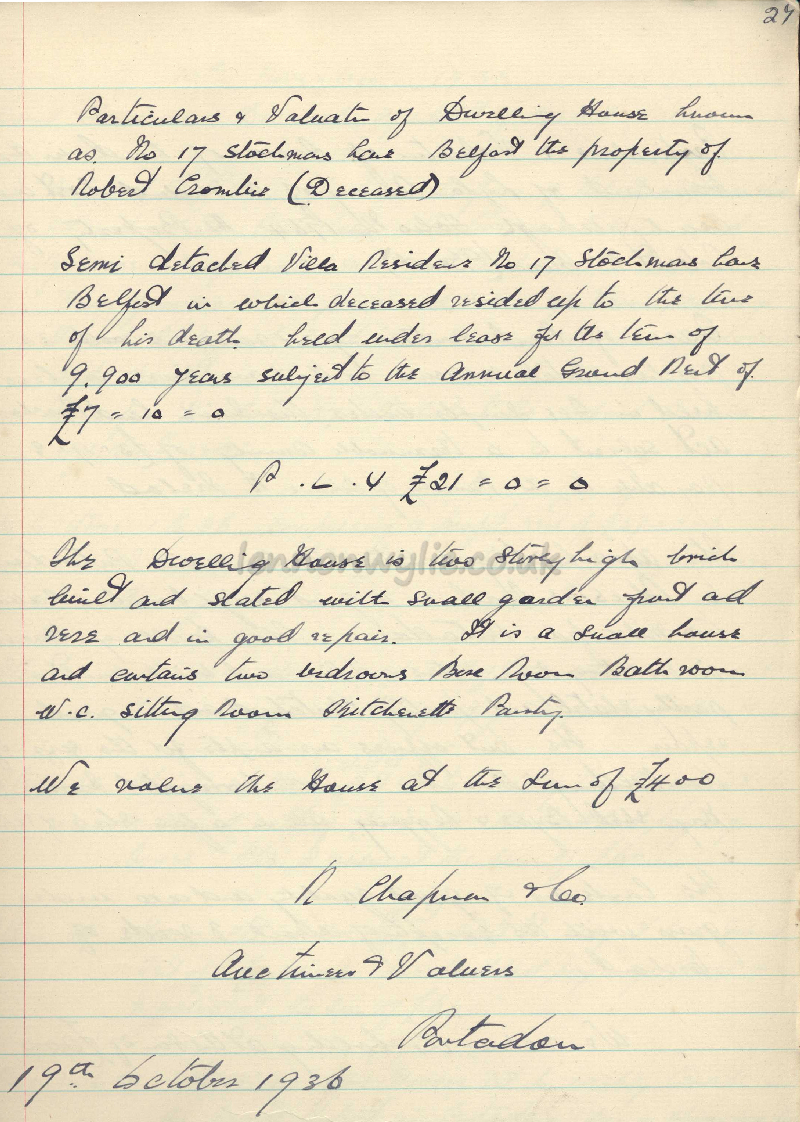 27
Particulars & Valuatn of Dwelling House known
as No 17 Stockmans Lane Belfast the property of
Robert Crombie (Deceased)
Semi detached Villa Residence No 17 Stockmans Lane
Belfast in which deceased resided up to the time
of his death held under lease for the term of
9.900 years subject to the Annual Ground Rent of
£7 = 10 = 0
P . L . V £21 = 0 = 0
The Dwelling House is two story high brick
built and slated with small garden front and
rere and in good repair. It is a small house
and contains two bedrooms Box Room Bathroom
W.C. sitting Room Kitchenette Pantry.
We value the House at the Sum of £400
R Chapman & Co.
Auctineers & Valuers
Portadown
19th October 1936
lennonwylie.co.uk